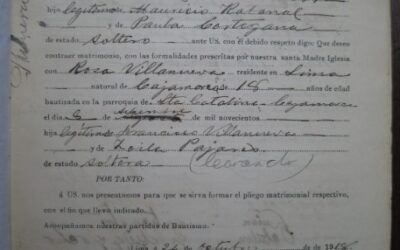 hijo legítimo de Mauricio Rabanal
y de Paula Cortegana
de estado soltero ante US. con el debido respeto digo: Que deseo
contraer matrimonio, con las formalidades prescritas por nuestra santa Madre Iglesia
con Rosa Villanueva residente en Lima
natural de Cajamarca 18 años de edad
bautizada en la parroquia de Sta Catalina Cajamarca
el dia 6 de mil novecientos
hija legítima Francisco Villanueva
y de Zoila Pajares
de estado soltera
POR TANTO:
Á US. nos presentamos para que se sirva formar el pliego matrimonial respectivo,
con el fin que lleva indicado.
Acompañamos nuestras partidas de Bautismo.
Lima 24 de octubre de 191